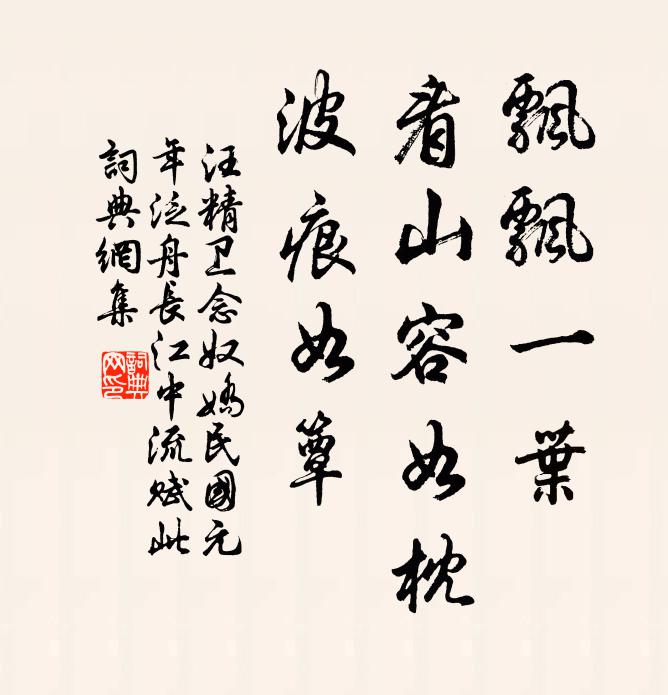 飄飄一葉
看山容如枕
波痕如簟
汪精卫念奴嬌民國元
年泛舟長江中流賦此
詞典網集
詞典
网印